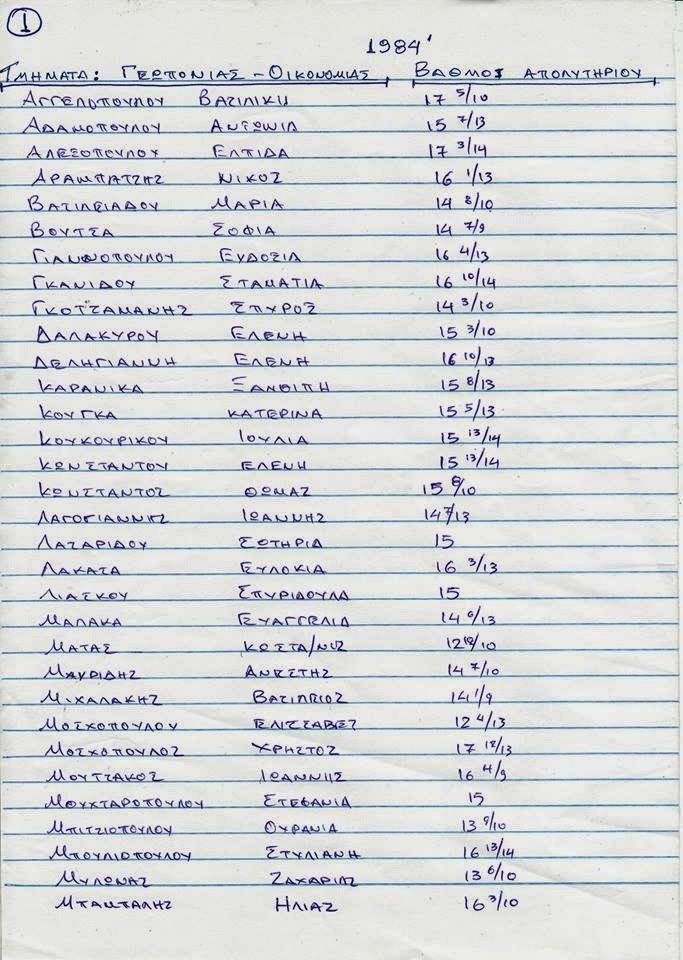 1
1984'
ΤΜΗΜΑΤΑ: ΓΕΩΠΟΝΙΑΣ - ΟΙΚΟΝΟΜΙΑΣ ΒΑΘΜΟΣ ΑΠΟΛΥΤΗΡΙΟΥ
ΑΓΓΕΛΟΠΟΥΛΟΥ ΒΑΣΙΛΙΚΗ 17 5/10
ΑΔΑΜΟΠΟΥΛΟΥ ΑΝΤΩΝΙΑ 15 7/13
ΑΛΕΞΟΠΟΥΛΟΥ ΕΛΠΙΔΑ 17 3/14
ΑΡΑΜΠΑΤΖΗΣ ΝΙΚΟΣ 16 1/13
ΒΑΣΙΛΕΙΑΔΟΥ ΜΑΡΙΑ 14 8/10
ΒΟΥΤΣΑ ΣΟΦΙΑ 14 7/9
ΓΙΑΝΝΟΠΟΥΛΟΥ ΕΥΔΟΞΙΑ 16 4/13
ΓΚΑΝΙΔΟΥ ΣΤΑΜΑΤΙΑ 16 10/14
ΓΚΟΤΖΑΜΑΝΗΣ ΣΠΥΡΟΣ 14 3/10
ΔΑΛΑΚΥΡΟΥ ΕΛΕΝΗ 15 3/10
ΔΕΛΗΓΙΑΝΝΗ ΕΛΕΝΗ 16 10/13
ΚΑΡΑΝΙΚΑ ΞΑΝΘΙΠΗ 15 8/13
ΚΟΥΓΚΑ ΚΑΤΕΡΙΝΑ 15 5/13
ΚΟΥΚΟΥΡΙΚΟΥ ΙΟΥΛΙΑ 15 13/14
ΚΩΝΣΤΑΝΤΟΥ ΕΛΕΝΗ 15 13/14
ΚΩΝΣΤΑΝΤΟΣ ΘΩΜΑΣ 15 8/10
ΛΑΓΟΓΙΑΝΝΗΣ ΙΩΑΝΝΗΣ 14 7/13
ΛΑΖΑΡΙΔΟΥ ΣΩΤΗΡΙΑ 15
ΛΑΚΑΤΑ ΕΥΔΟΚΙΑ 16 3/13
ΛΙΑΣΚΟΥ ΣΠΥΡΙΔΟΥΛΑ 15
ΜΑΛΑΚΑ ΕΥΑΓΓΕΛΙΑ 14 6/13
ΜΑΤΑΣ ΚΩΣΤΑ/ΝΟΣ
ΜΑΥΡΙΔΗΣ ΑΝΕΣΤΗΣ 14 7/10
ΜΙΧΑΛΑΚΗΣ ΒΑΣΙΛΕΙΟΣ 14 1/9
ΜΟΣΧΟΠΟΥΛΟΥ ΕΛΙΣΣΑΒΕΤ 12 4/13
ΜΟΣΧΟΠΟΥΛΟΣ ΧΡΗΣΤΟΣ 17 12/13
ΜΟΥΤΖΑΚΟΣ ΙΩΑΝΝΗΣ 16 4/9
ΜΟΥΧΤΑΡΟΠΟΥΛΟΥ ΣΤΕΦΑΝΙΑ 15
ΜΠΙΤΖΙΟΠΟΥΛΟΥ ΟΥΡΑΝΙΑ 13 9/10
ΜΠΟΥΛΙΟΠΟΥΛΟΥ ΣΤΥΛΙΑΝΗ 16 13/14
ΜΥΛΩΝΑΣ ΖΑΧΑΡΙΑΣ 13 6/10
ΜΠΑΜΠΑΛΗΣ ΗΛΙΑΣ 16 3/10